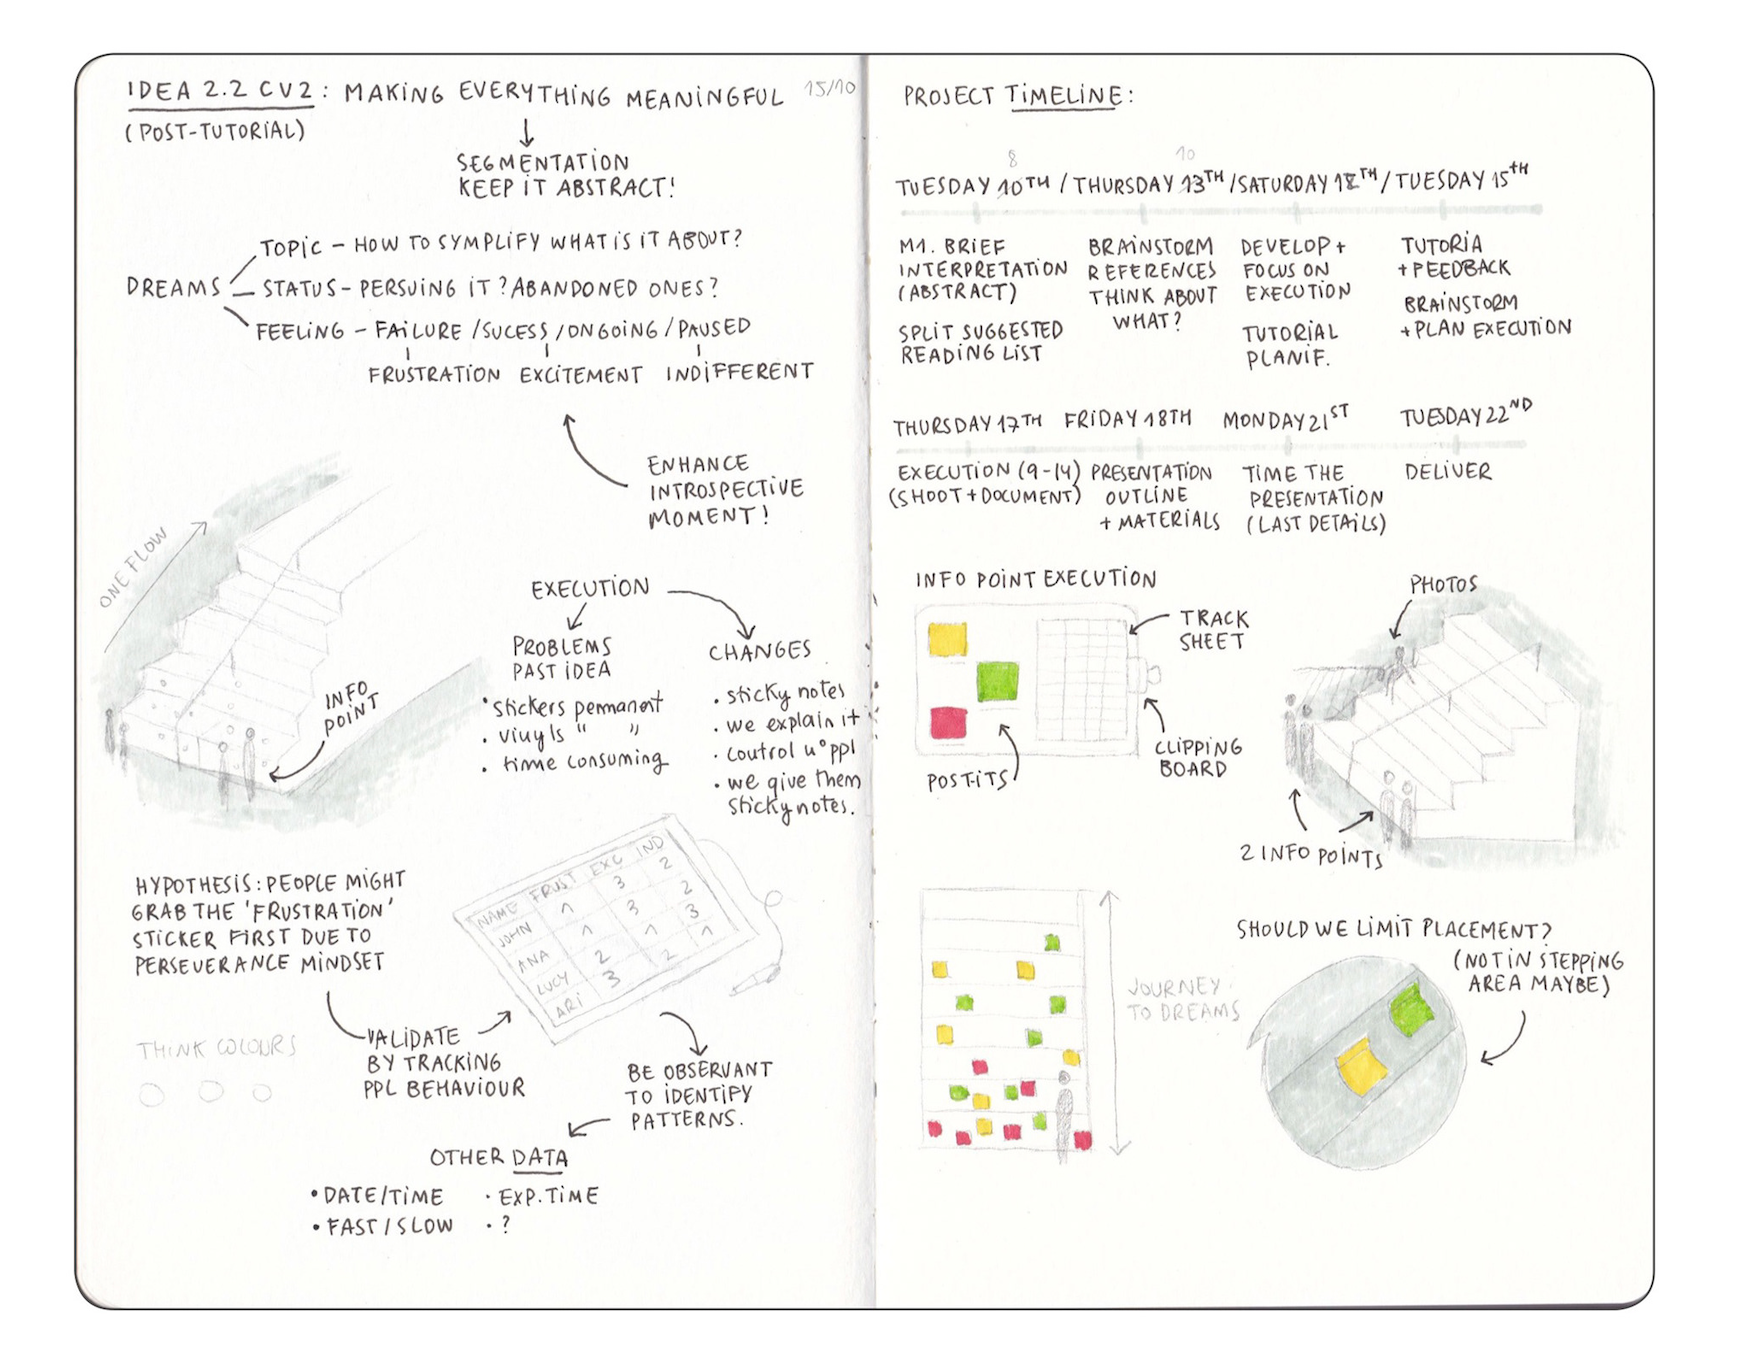 IDEA 2.2 CV2: MAKING EVERYTHING MEANINGFUL 15/10
(POST-TUTORIAL)
SEGMENTATION
KEEP IT ABSTRACT!
TOPIC - HOW TO SYMPLIFY WHAT IS IT ABOUT?
DREAMS
STATUS - PERSUING IT? ABANDONED ONES?
FEELING - FAILURE /SUCESS /ONGOING /PAUSED
FRUSTRATION EXCITEMENT INDIFFERENT
ENHANCE
INTROSPECTIVE
MOMENT!
ONE FLOW
INFO
POINT
EXECUTION
PROBLEMS
PAST IDEA
• stickers permanent
• vinyls " "
• time consuming
CHANGES
• sticky notes
• we explain it
• control nº ppl
• we give them
sticky notes.
HYPOTHESIS: PEOPLE MIGHT
GRAB THE 'FRUSTRATION'
STICKER FIRST DUE TO
PERSEVERANCE MINDSET
NAME FRUST EXC IND
JOHN 1 3 2
ANA 1 3 2
LUCY 2 1 3
ARI 3 2 1
THINK COLOURS
VALIDATE
BY TRACKING
PPL BEHAVIOUR
BE OBSERVANT
TO IDENTIFY
PATTERNS.
OTHER DATA
• DATE/TIME • EXP. TIME
• FAST/SLOW • ?
PROJECT TIMELINE:
8 10
TUESDAY 10TH / THURSDAY 13TH / SATURDAY 12TH / TUESDAY 15TH
M1. BRIEF
INTERPRETATION
(ABSTRACT)
SPLIT SUGGESTED
READING LIST
BRAINSTORM
REFERENCES
THINK ABOUT
WHAT?
DEVELOP +
FOCUS ON
EXECUTION
TUTORIAL
PLANIF.
TUTORIA
+ FEEDBACK
BRAINSTORM
+ PLAN EXECUTION
THURSDAY 17TH FRIDAY 18TH MONDAY 21ST TUESDAY 22ND
EXECUTION (9-14)
(SHOOT + DOCUMENT)
PRESENTATION
OUTLINE
+ MATERIALS
TIME THE
PRESENTATION
(LAST DETAILS)
DELIVER
INFO POINT EXECUTION
TRACK
SHEET
CLIPPING
BOARD
POST-ITS
PHOTOS
2 INFO POINTS
JOURNEY
TO DREAMS
SHOULD WE LIMIT PLACEMENT?
(NOT IN STEPPING
AREA MAYBE)